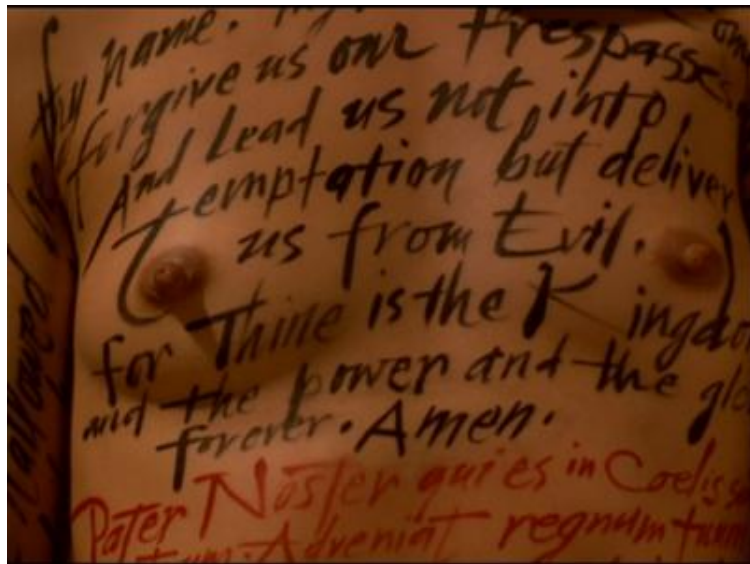 thy name.
forgive us our trespasses
And Lead us not into
temptation but deliver
us from Evil.
for Thine is the Kingdo
and the power and the glo
forever. Amen.
Pater Noster qui es in Coelis s
tum. Adveniat regnum tuum
Hallowed